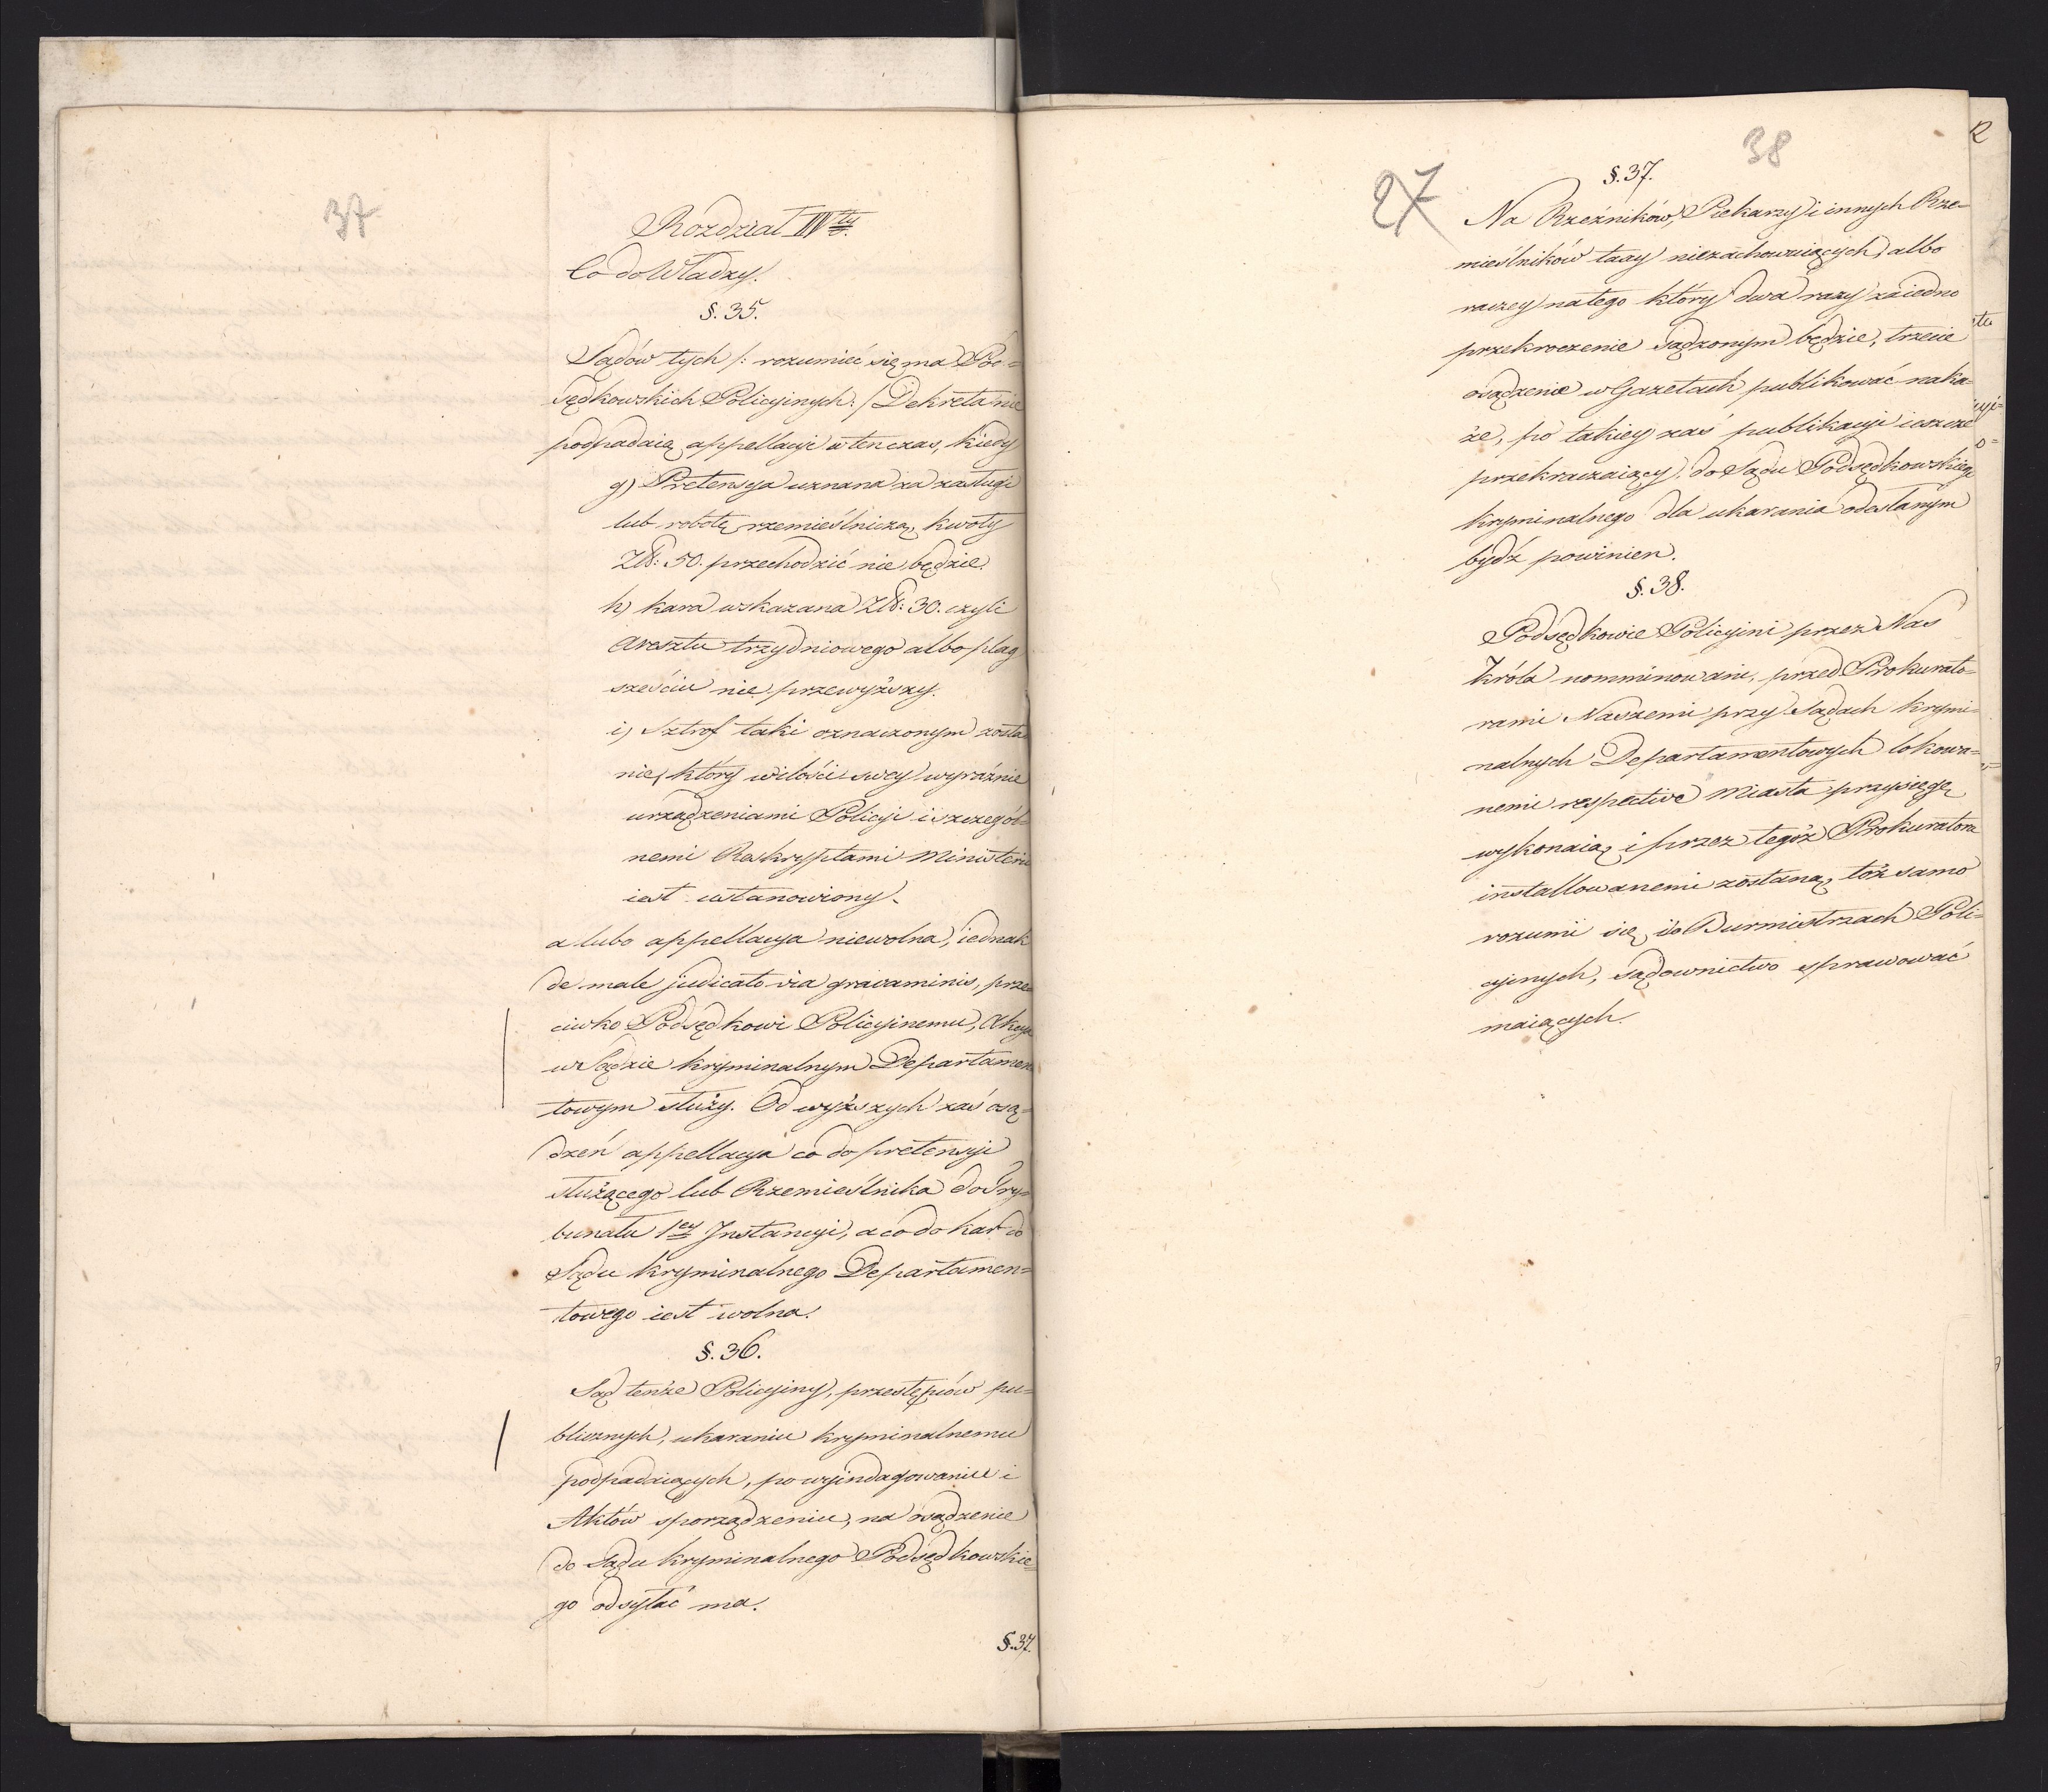 37
Rozdział IV ty.
Co do Władzy.
§. 35.
Sądów tych /: rozumieć się ma Pod-
sędkowskich Policyinych :/ Dekreta nie
podpadaią appellacyi wtenczas, kiedy
g) Pretensya uznana za zasługi
lub robotę rzemieślniczą, kwoty
Zł: 50. przechodzić nie będzie.
h) kara wskazana Zł: 30. czyli
Aresztu trzydniowego albo plag
sześciu nie przewyższy.
i) Sztrof taki oznaczonym zosta
nie, który wilości swey wyraźnie
urządzeniami Policyi i szczegól-
nemi Reskryptami Ministeriu
iest ustanowiony.
a lubo appellacya niewolna, iednak
de male judicato via gravaminis, prze
ciwko Podsędkowi Policyinemu, Akcya
w Sądzie kryminalnym Departamen
towym służy. Od wyższych zaś osą-
dzeń appellacya co do pretensyi
służącego lub Rzemieślnika do Try-
bunału 1ey Instancyi, a co do kar do
Sądu kryminalnego Departamen-
towego iest wolna.
§. 36.
Sąd tenże Policyiny, przestępców pu-
blicznych, ukaraniu kryminalnemu
podpadaiących, po wyindagowaniu i
Aktów sporządzeniu, na osądzenie
do Sądu kryminalnego Podsędkowskie-
go odsyłać ma.
§. 37.
38
27
§. 37.
Na Rzeźników, Piekarzy i innych Rze-
mieślników taxy niezachowuiących, albo
raczey na tego który dwa razy za iedno
przekroczenie sądzonym będzie, trzecie
osądzenie w Gazetach publikować naka-
że, po takiey zaś publikacyi ieszcze
przekraczaiący, do Sądu Podsędkowskiego
kryminalnego dla ukarania odesłanym
bydź powinien.
§. 38.
Podsędkowie Policyini przez Nas
Króla nomminowani, przed Prokurato-
rami Naszemi przy Sądach krymi-
nalnych Departamentowych lokowa-
nemi respective Miasta przysięgę
wykonaią i przez tegóż Prokuratora
installowanemi zostaną, tóż samo
rozumi się i o Burmistrzach Poli-
cyinych, sądownictwo sprawować
maiących.